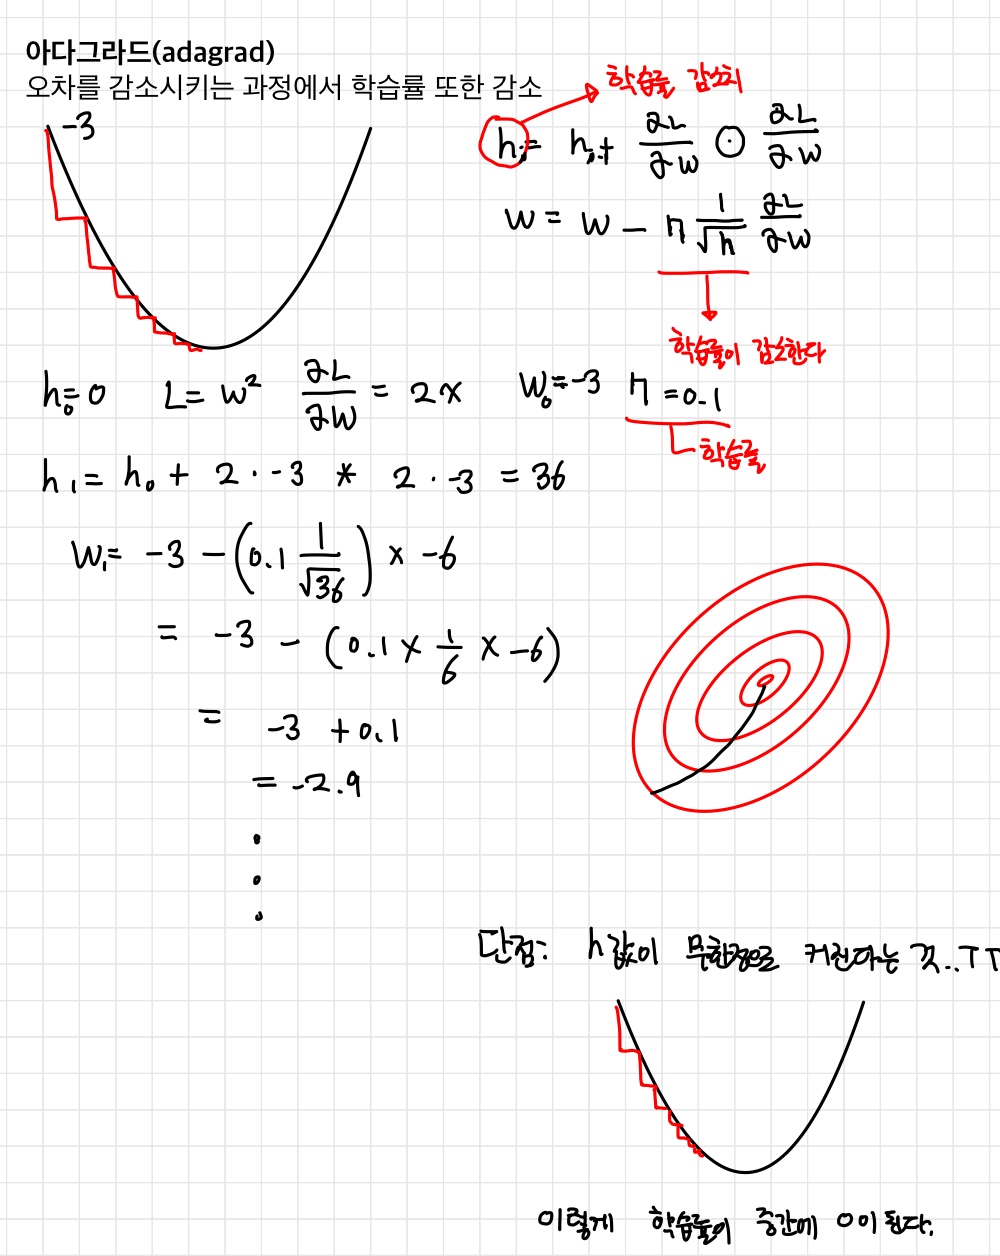 아다그라드(adagrad)
오차를 감소시키는 과정에서 학습률 또한 감소
학습률 감소치
-3
h₁= h₀+ ∂L/∂W ⊙ ∂L/∂W
W = W - η 1/√h ∂L/∂W
학습률이 감소한다
h₀=0 L= W² ∂L/∂W = 2x W₀=-3 η =0.1
학습률
h₁= h₀ + 2 · -3 * 2 · -3 = 36
W₁= -3 - (0.1 1/√36) x -6
= -3 - (0.1 x 1/6 x -6)
= -3 +0.1
= -2.9
단점: h값이 무한정으로 커진다는 것..ㅜㅜ
이렇게 학습률이 중간에 0이 된다.